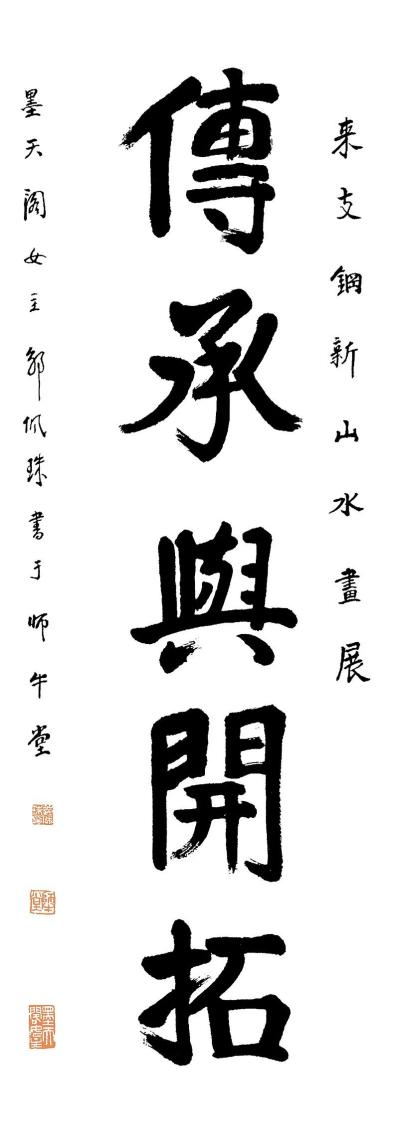 来支鋼新山水畫展
傳承與開拓
墨天阁女主邹佩珠書于师牛堂